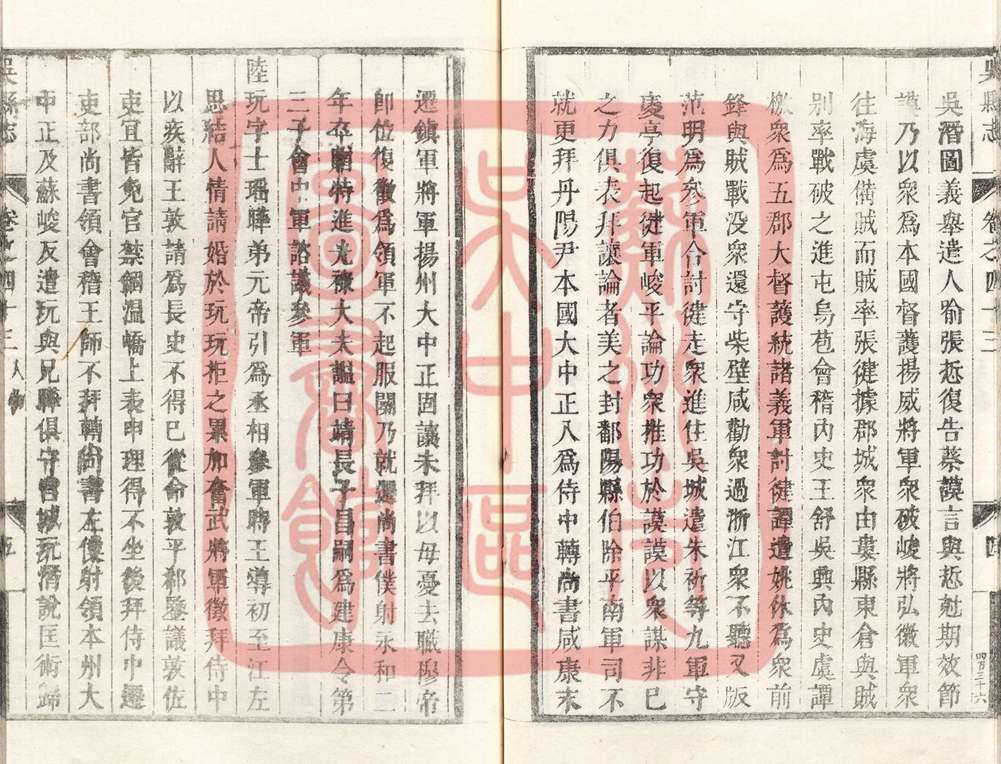 吳縣志
卷之四十三
四
四百三十六
吳潛圖義舉遣人喻張悊復告蔡謨言與悊尅期效節
謨乃以衆爲本國督護揚威將軍衆破峻將弘徽軍衆
往海虞俻賊而賊率張健據郡城衆由婁縣東倉與賊
別率戰破之進屯烏苞會稽內史王舒吳興內史虞譚
檄衆爲五郡大督護統諸義軍討健譚遣姚休爲衆前
鋒與賊戰没衆還守柴壁咸勸衆過浙江衆不聽又版
范明爲參軍合討健走衆進住吳城遣朱祈等九軍守
慶亭復起健軍峻平論功衆推功於謨謨以衆謀非已
之力俱表拜讓論者美之封鄱陽縣伯除平南軍司不
就更拜丹陽尹本國大中正入爲侍中轉尚書咸康末
遷鎮軍將軍揚州大中正固讓未拜以母憂去職穆帝
卽位復徵爲領軍不起服闋乃就遷尚書僕射永和二
年卒贈特進光祿大夫謚曰靖長子昌嗣爲建康令第
三子會中軍諮議參軍
陸玩字士瑤曄弟元帝引爲丞相參軍時王導初至江左
思結人情請婚於玩玩拒之累加奮武將軍徵拜侍中
以疾辭王敦請爲長史不得已從命敦平郗鑒議敦佐
吏宜皆免官禁錮溫嶠上表申理得不坐後拜侍中遷
吏部尚書領會稽王師不拜轉尚書左僕射領本州大
中正及蘇峻反遣玩與兄曄俱守宮城玩潛說匡術歸
吳縣志
卷之四十三
人物
五
蘇州市
吳中區
圖書館